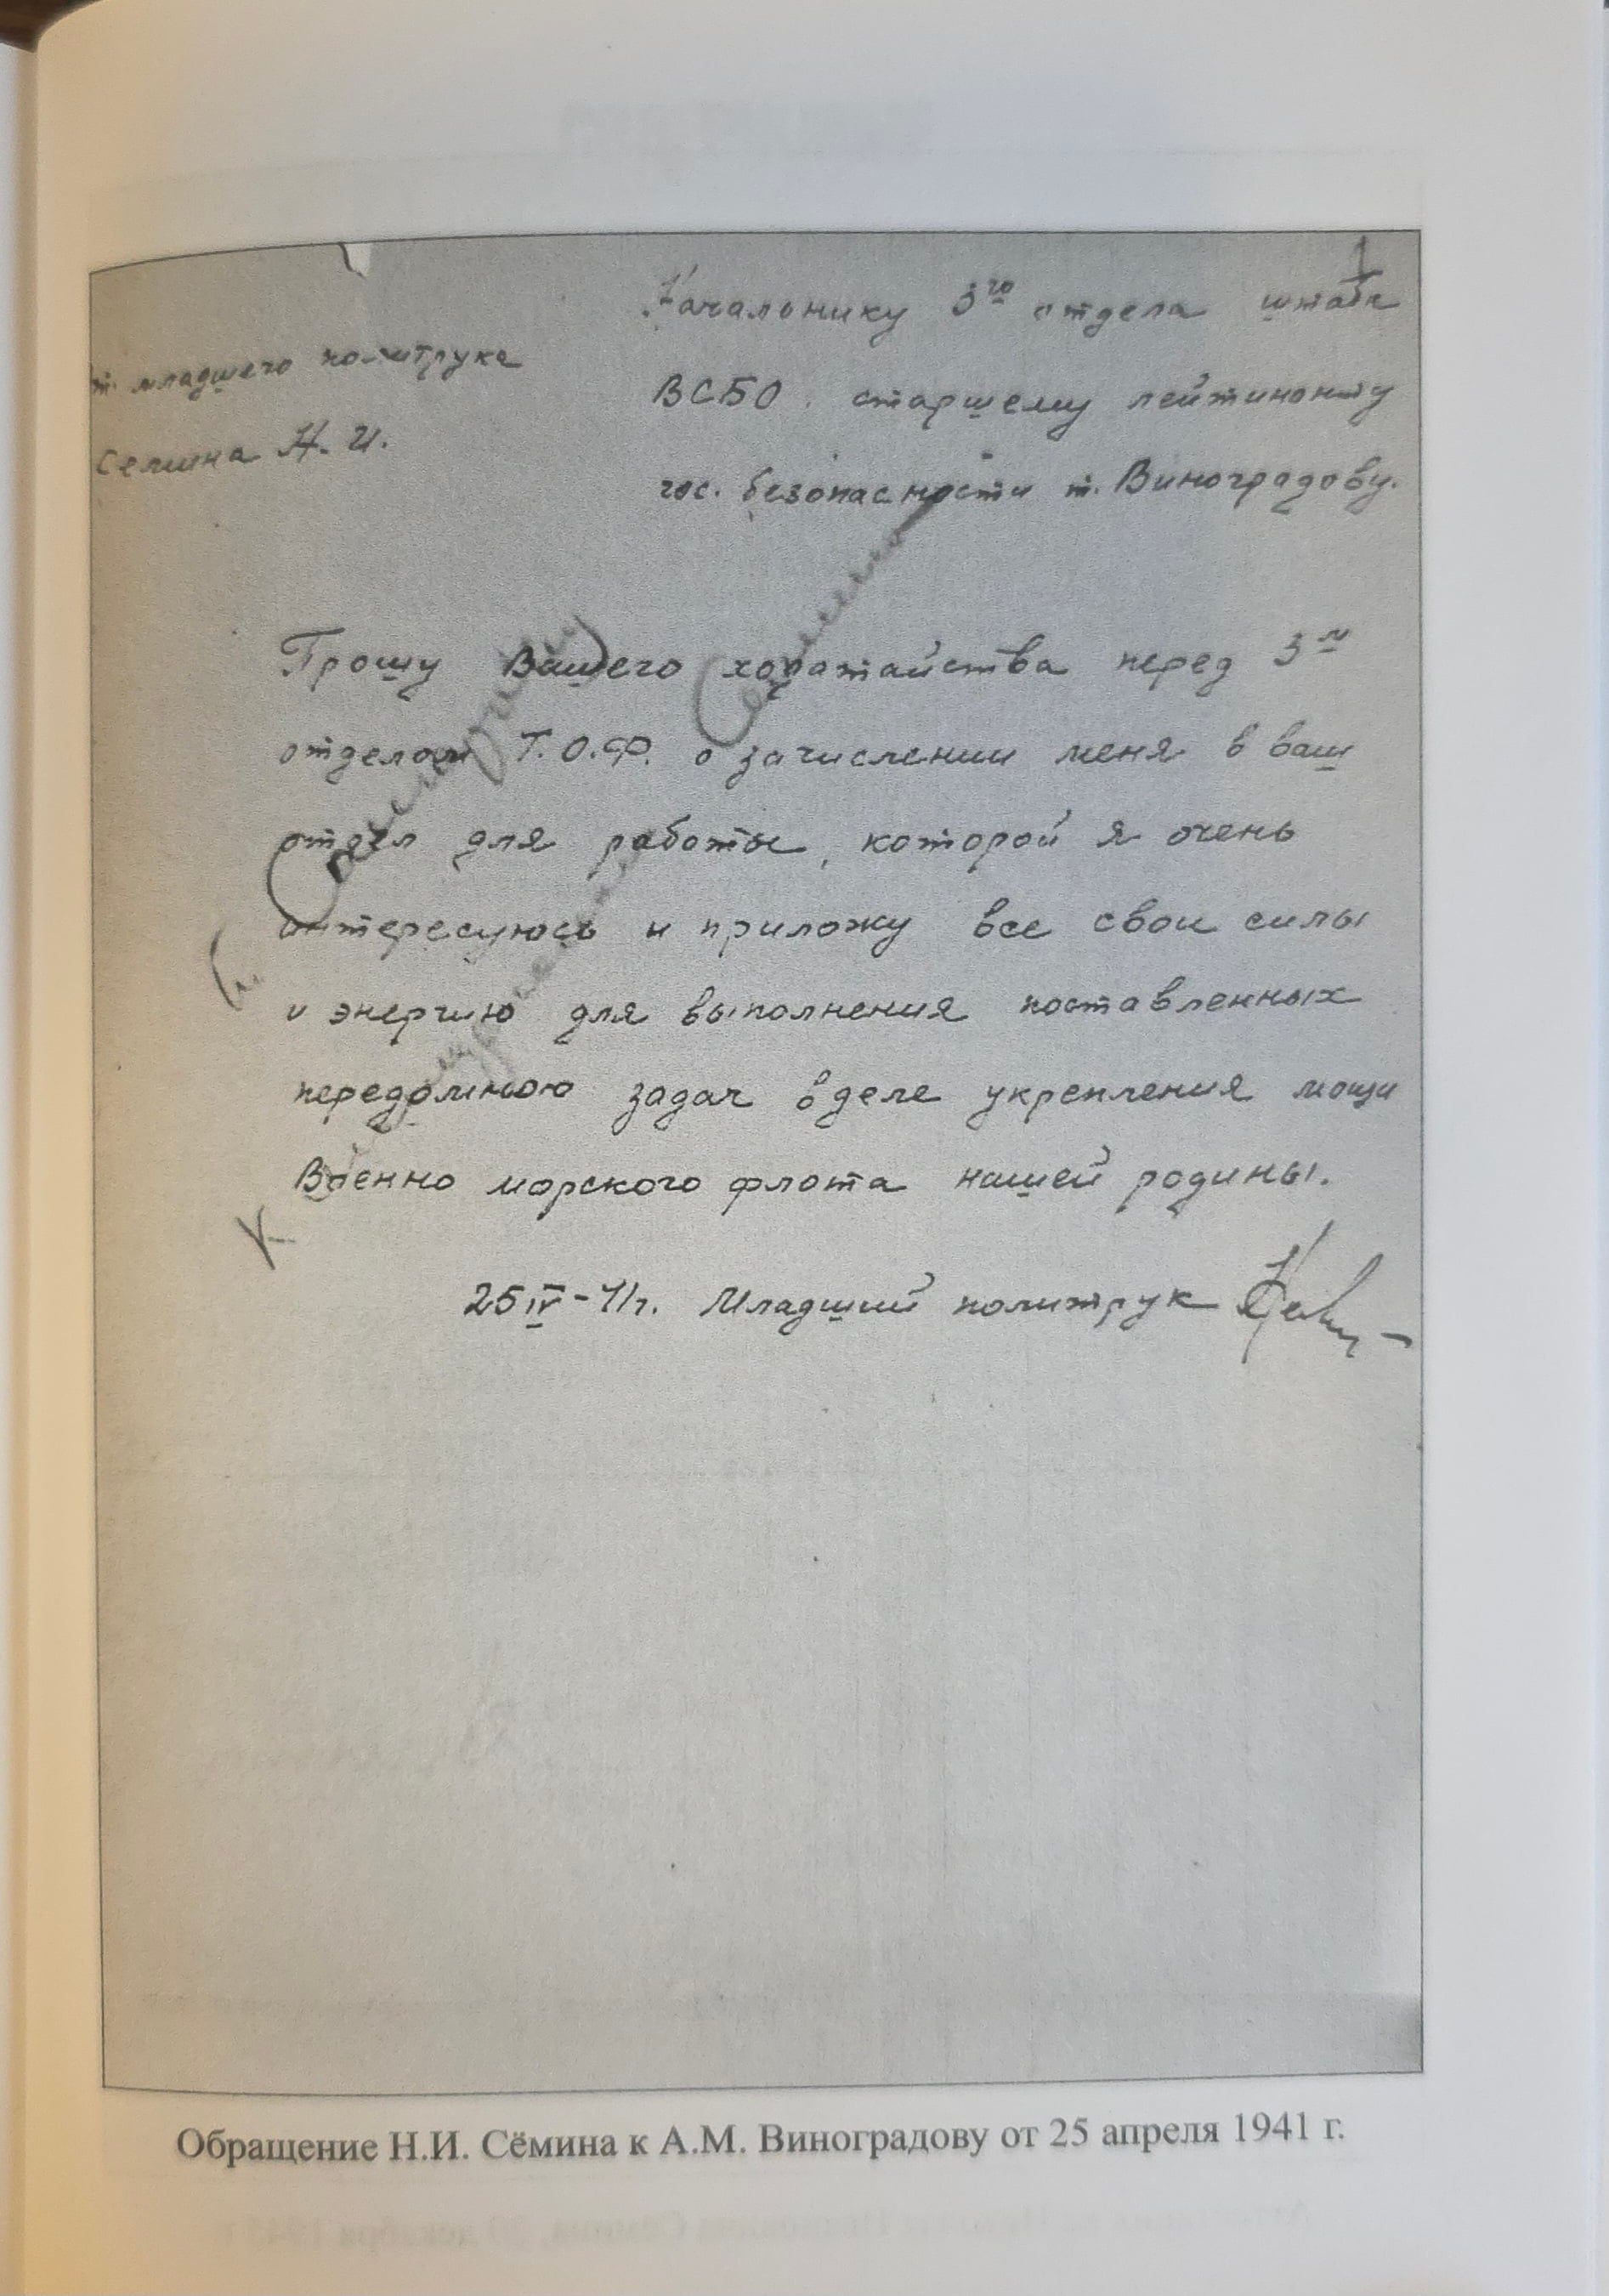 Начальнику 3го отдела штаба
ВСБО. старшему лейтинанту
гос. безопасности т. Виноградову.
от младшего политрука
Семина Н. И.
Прошу Вашего ходатайства перед 3м
отделом Т.О.Ф. о зачислении меня в ваш
отдел для работы, которой я очень
интересуюсь и приложу все свои силы
и энергию для выполнения поставленных
передомною задач в деле укрепления мощи
Военно морского флота нашей родины.
25 IV - 41г. Младший политрук
Обращение Н.И. Сёмина к А.М. Виноградову от 25 апреля 1941 г.